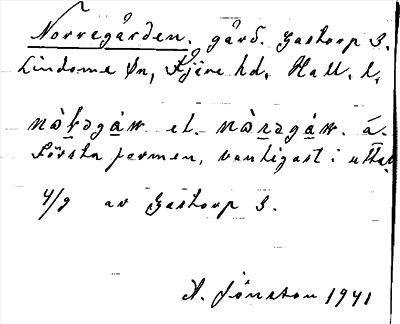 Norregården. gård. Gastorp 3.
Lindome sn, Fjäre hd, Hall. l.
et. á.
Första formen, vanligast i uttal.
4/9 av Gastorp 3.
A. Jönsson 1941